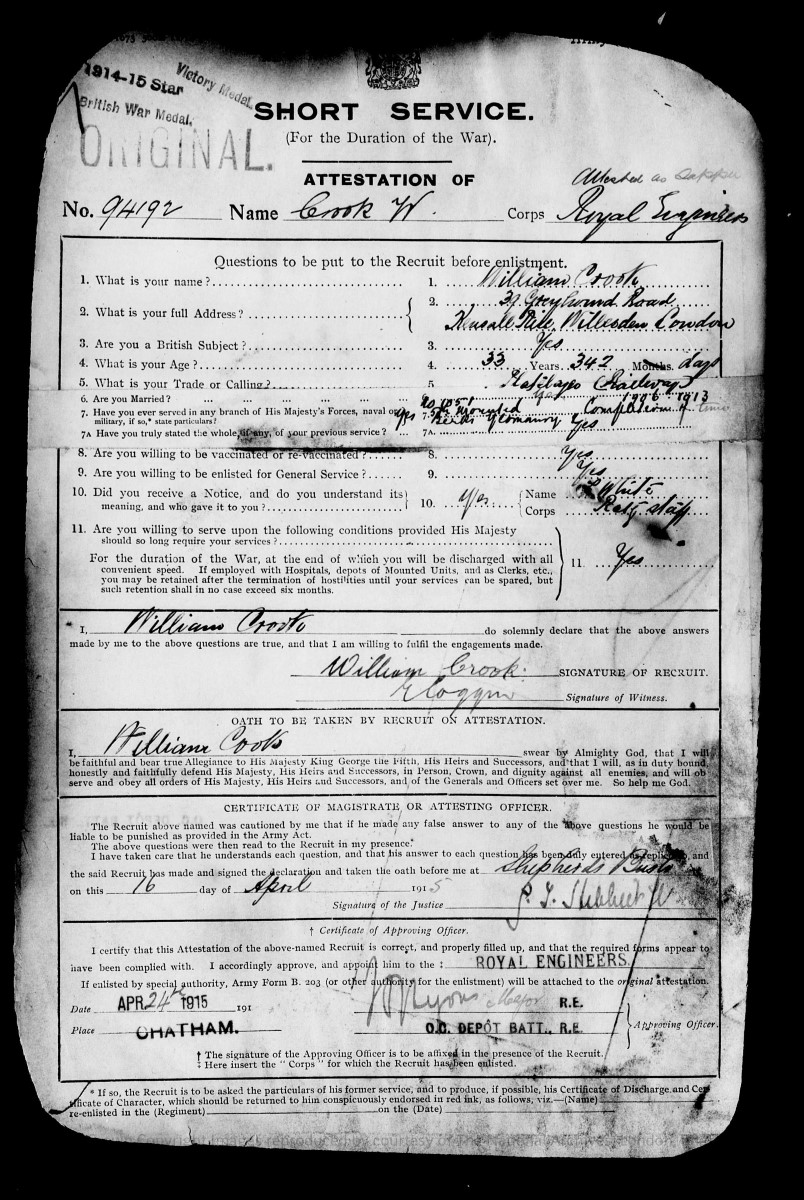 1914-15 Star
Victory Medal.
British War Medal.
ORIGINAL.
SHORT SERVICE.
(For the Duration of the War).
ATTESTATION OF
Attested as Sapper
No. 94192 Name Crook W. Corps Royal Engineers
Questions to be put to the Recruit before enlistment.
1. What is your name? 1. William Crook
2. What is your full Address? 2. 39 Greyhound Road
Kensall Rise, Willesden London
3. Are you a British Subject? 3. Yes
4. What is your Age? 4. 33 Years. 342 Months. days
5. What is your Trade or Calling? 5 Platelayer Railways
6. Are you Married? Yes
7. Have you ever served in any branch of His Majesty's Forces, naval or
military, if so,* state particulars? Yes 7. Mounted Completion of time
Berks Yeomanry
7A Have you truly stated the whole, if any, of your previous service? 7A. Yes
8. Are you willing to be vaccinated or re-vaccinated? 8. Yes
9. Are you willing to be enlisted for General Service? 9. Yes
10. Did you receive a Notice, and do you understand its
meaning, and who gave it to you? 10. Yes Name White
Corps Rctg staff
11. Are you willing to serve upon the following conditions provided His Majesty
should so long require your services?
For the duration of the War, at the end of which you will be discharged with all
convenient speed. If employed with Hospitals, depots of Mounted Units, and as Clerks, etc.,
you may be retained after the termination of hostilities until your services can be spared, but
such retention shall in no case exceed six months.
11. Yes
I, William Crook do solemnly declare that the above answers
made by me to the above questions are true, and that I am willing to fulfil the engagements made.
William Crook. SIGNATURE OF RECRUIT.
Signature of Witness.
OATH TO BE TAKEN BY RECRUIT ON ATTESTATION.
I, William Cook swear by Almighty God, that I will
be faithful and bear true Allegiance to His Majesty King George the Fifth, His Heirs and Successors, and that I will, as in duty bound,
honestly and faithfully defend His Majesty, His Heirs and Successors, in Person, Crown, and dignity against all enemies, and will ob
serve and obey all orders of His Majesty, His Heirs and Successors, and of the Generals and Officers set over me. So help me God.
CERTIFICATE OF MAGISTRATE OR ATTESTING OFFICER.
The Recruit above named was cautioned by me that if he made any false answer to any of the above questions he would be
liable to be punished as provided in the Army Act.
The above questions were then read to the Recruit in my presence.
I have taken care that he understands each question, and that his answer to each question has been duly entered as replied to, and
the said Recruit has made and signed the declaration and taken the oath before me at Shepherds Bush
on this 16 day of April 1915
Signature of the Justice
† Certificate of Approving Officer.
I certify that this Attestation of the above-named Recruit is correct, and properly filled up, and that the required forms appear to
have been complied with. I accordingly approve, and appoint him to the ‡ ROYAL ENGINEERS.
If enlisted by special authority, Army Form B. 203 (or other authority for the enlistment) will be attached to the original attestation.
Date APR 24th 1915 191 Major R.E.
Place CHATHAM. O.C. DEPÔT BATT., R.E. Approving Officer.
† The signature of the Approving Officer is to be affixed in the presence of the Recruit.
‡ Here insert the "Corps" for which the Recruit has been enlisted.
* If so, the Recruit is to be asked the particulars of his former service, and to produce, if possible, his Certificate of Discharge and Cer
tificate of Character, which should be returned to him conspicuously endorsed in red ink, as follows, viz.—(Name)
re-enlisted in the (Regiment) on the (Date)
Copyright images reproduced by courtesy of The National Archives, London,